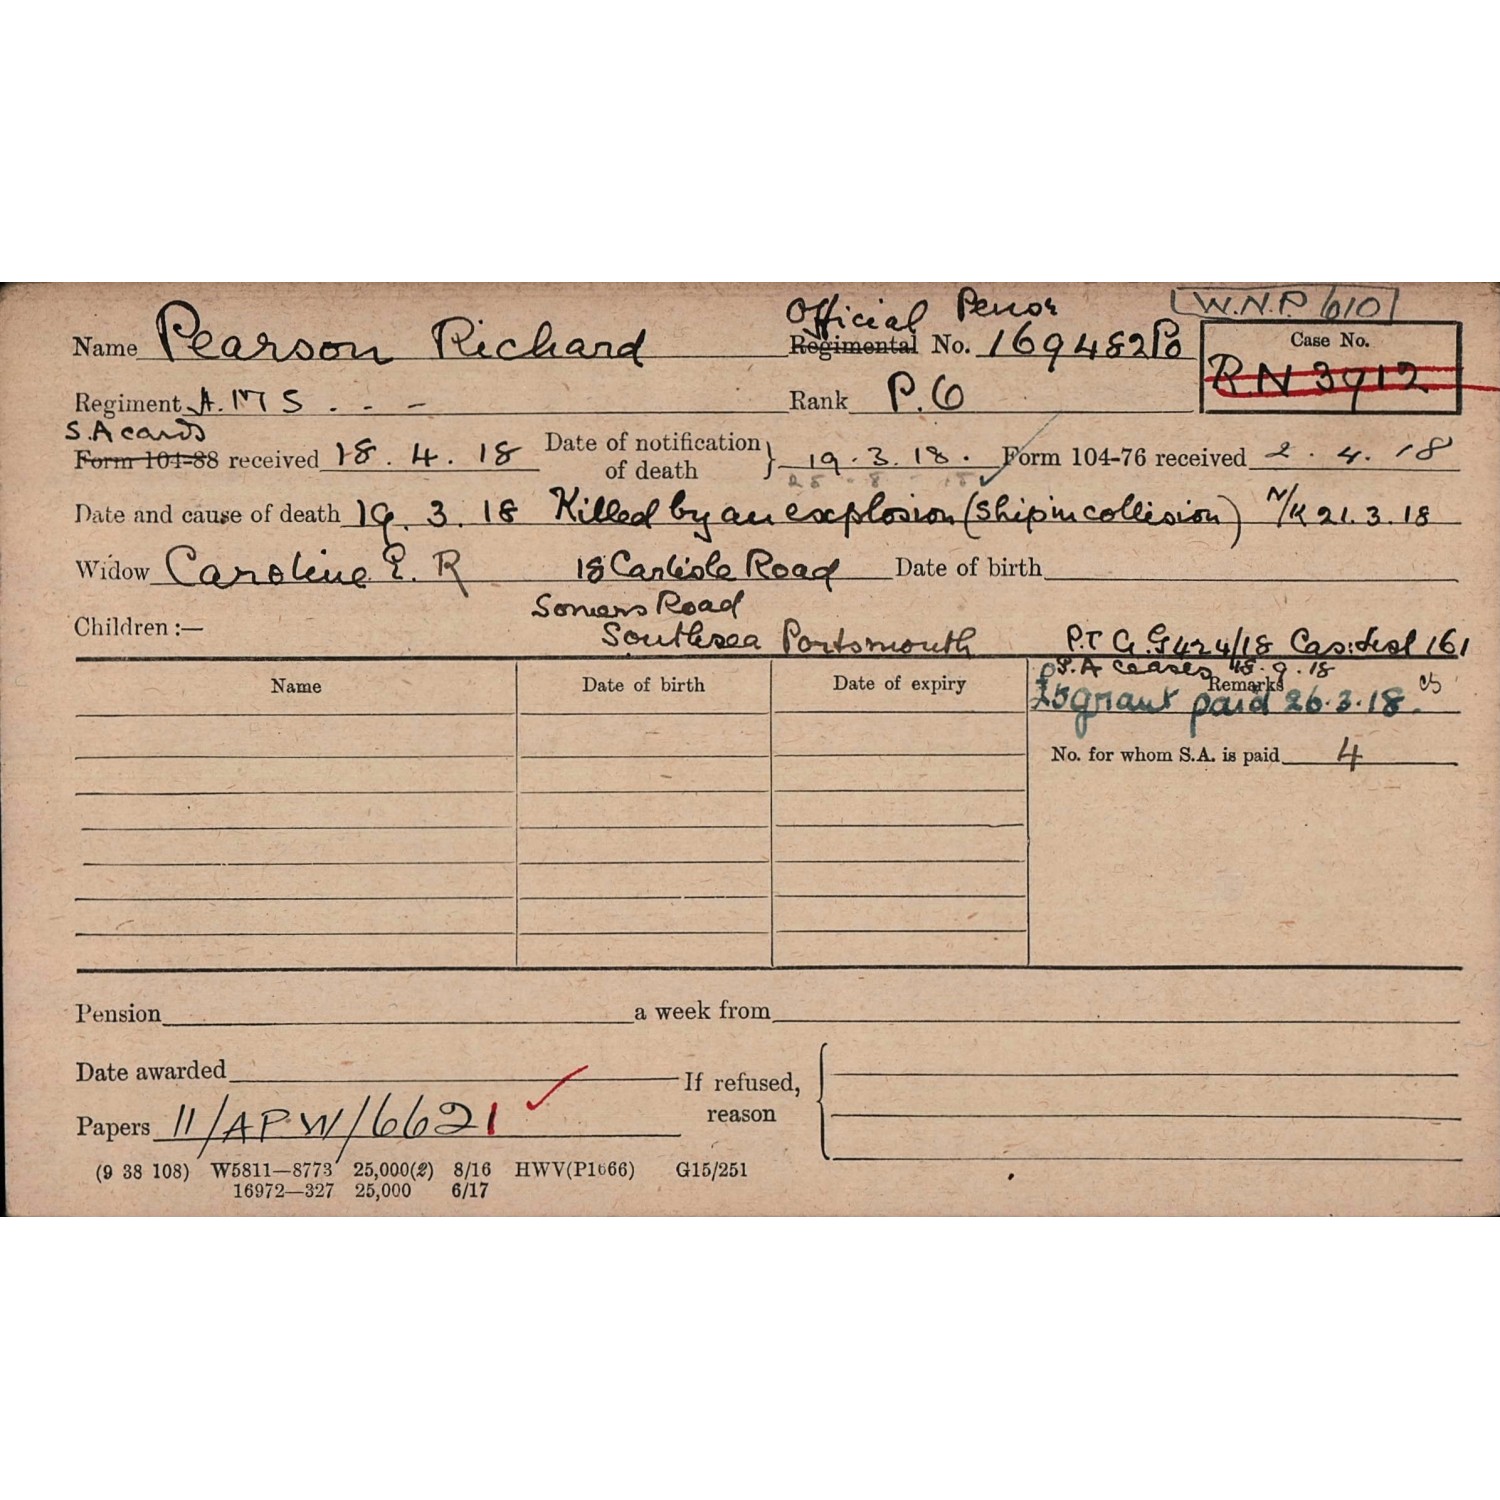 Official W.N.P. 610
Name Pearson Richard Regimental No. 169482 Po Case No.
RN 3912
Regiment A.M S . - - Rank P.O
S.A cards
Form 104-88 received 18. 4. 18 Date of notification of death } 19.3.18. Form 104-76 received 2. 4. 18
25 . 8 . 18
Date and cause of death 19. 3. 18 Killed by an explosion (Ship in collision) N/K 21.3.18
Widow Caroline E. R 18 Carlisle Road Date of birth
Somers Road
Children :— Southsea Portsmouth P.T G. 9424/18 Cas: 161
S.A ceases 18.9.18
Name Date of birth Date of expiry Remarks
£5 grant paid 26.3.18.
No. for whom S.A. is paid 4
Pension a week from
Date awarded If refused, reason
Papers 11/APW/6621
(9 38 108) W5811—8773 25,000(2) 8/16 HWV(P1666) G15/251
16972—327 25,000 6/17